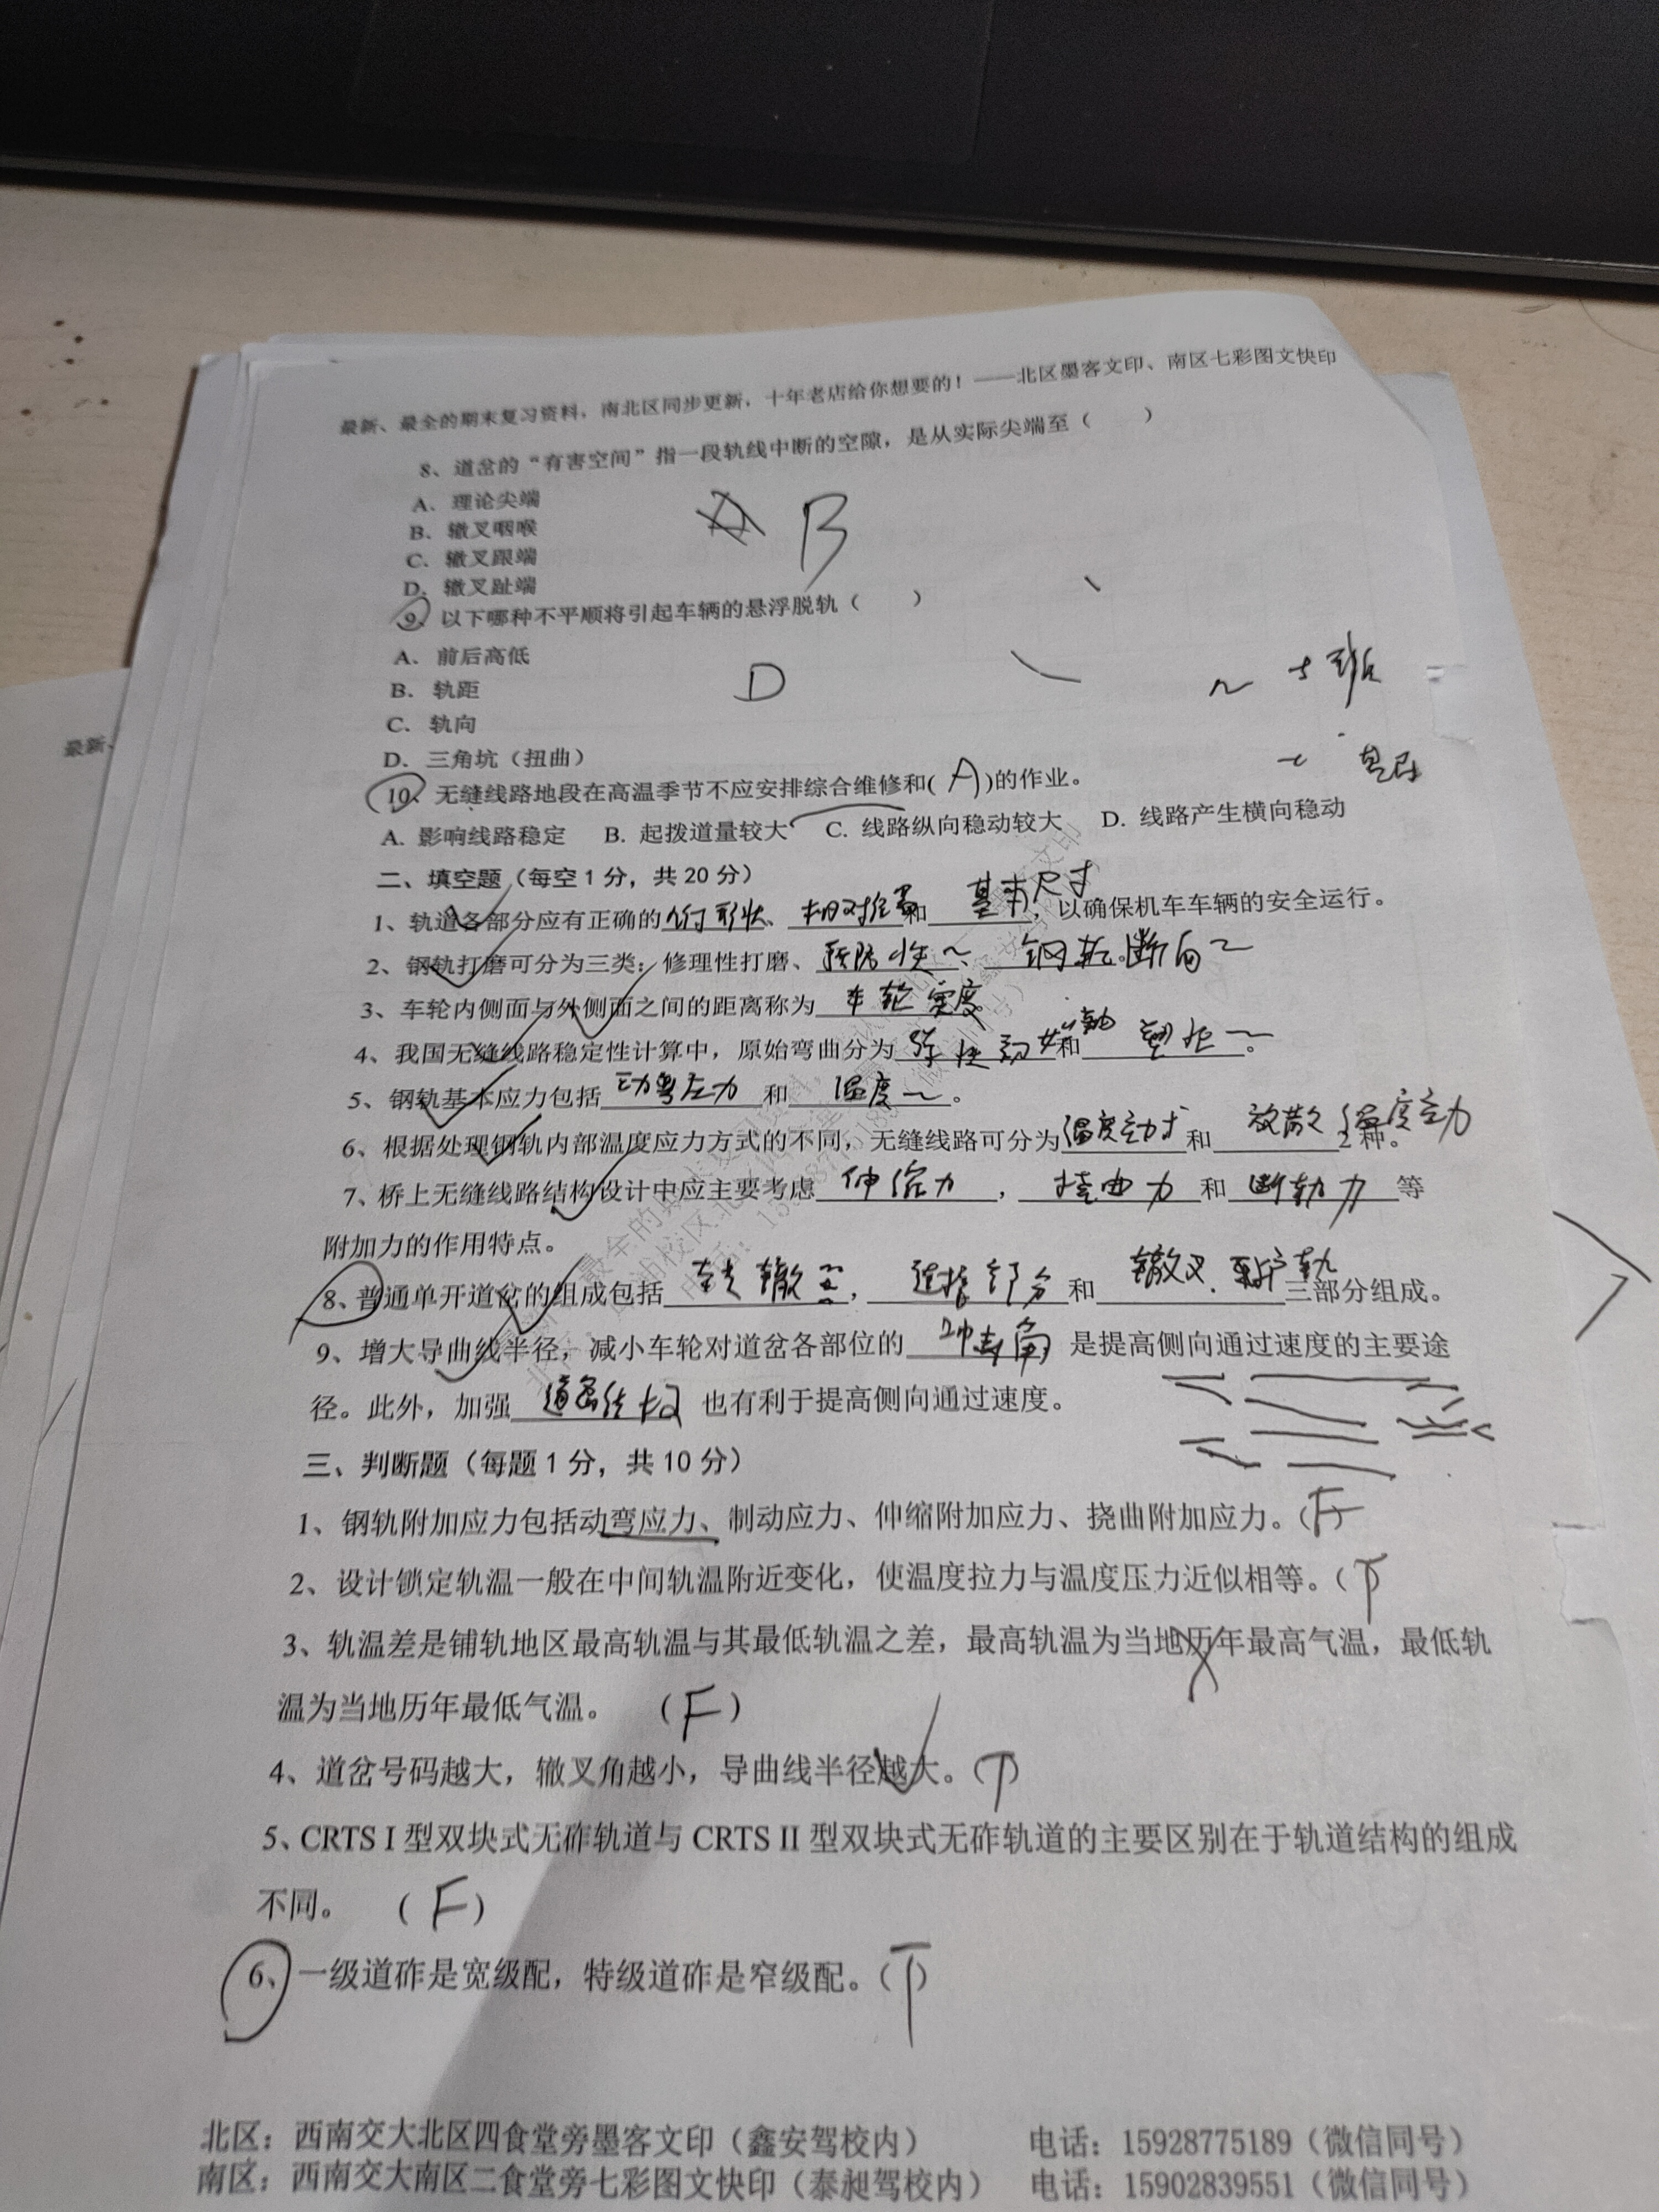 最新、最全的期末复习资料，南北区同步更新，十年老店给你想要的！——北区墨客文印、南区七彩图文快印
8、道岔的“有害空间”指一段轨线中断的空隙，是从实际尖端至（ ）
A. 理论尖端
B. 辙叉咽喉
C. 辙叉跟端
D. 辙叉趾端
B
9、以下哪种不平顺将引起车辆的悬浮脱轨（ ）
A. 前后高低
B. 轨距
C. 轨向
D. 三角坑（扭曲）
D
10、无缝线路地段在高温季节不应安排综合维修和( A )的作业。
A. 影响线路稳定 B. 起拨道量较大 C. 线路纵向稳动较大 D. 线路产生横向稳动
二、填空题（每空1分，共20分）
1、轨道各部分应有正确的几何形状、相对位置和基本尺寸，以确保机车车辆的安全运行。
2、钢轨打磨可分为三类：修理性打磨、预防性～、钢轨断面～
3、车轮内侧面与外侧面之间的距离称为车轮宽度
4、我国无缝线路稳定性计算中，原始弯曲分为弹性初始弯曲和塑性～。
5、钢轨基本应力包括动弯应力和温度～。
6、根据处理钢轨内部温度应力方式的不同，无缝线路可分为温度应力式和放散温度应力2种。
7、桥上无缝线路结构设计中应主要考虑伸缩力，挠曲力和断轨力等
附加力的作用特点。
8、普通单开道岔的组成包括转辙器，连接部分和辙叉、护轨三部分组成。
9、增大导曲线半径，减小车轮对道岔各部位的冲击角是提高侧向通过速度的主要途
径。此外，加强道岔结构也有利于提高侧向通过速度。
三、判断题（每题1分，共10分）
1、钢轨附加应力包括动弯应力、制动应力、伸缩附加应力、挠曲附加应力。(F)
2、设计锁定轨温一般在中间轨温附近变化，使温度拉力与温度压力近似相等。(T)
3、轨温差是铺轨地区最高轨温与其最低轨温之差，最高轨温为当地历年最高气温，最低轨
温为当地历年最低气温。 (F)
4、道岔号码越大，辙叉角越小，导曲线半径越大。(T)
5、CRTS I 型双块式无砟轨道与 CRTS II 型双块式无砟轨道的主要区别在于轨道结构的组成
不同。 (F)
6、一级道砟是宽级配，特级道砟是窄级配。(T)
北区：西南交大北区四食堂旁墨客文印（鑫安驾校内） 电话：15928775189（微信同号）
南区：西南交大南区二食堂旁七彩图文快印（泰昶驾校内） 电话：15902839551（微信同号）
最新、